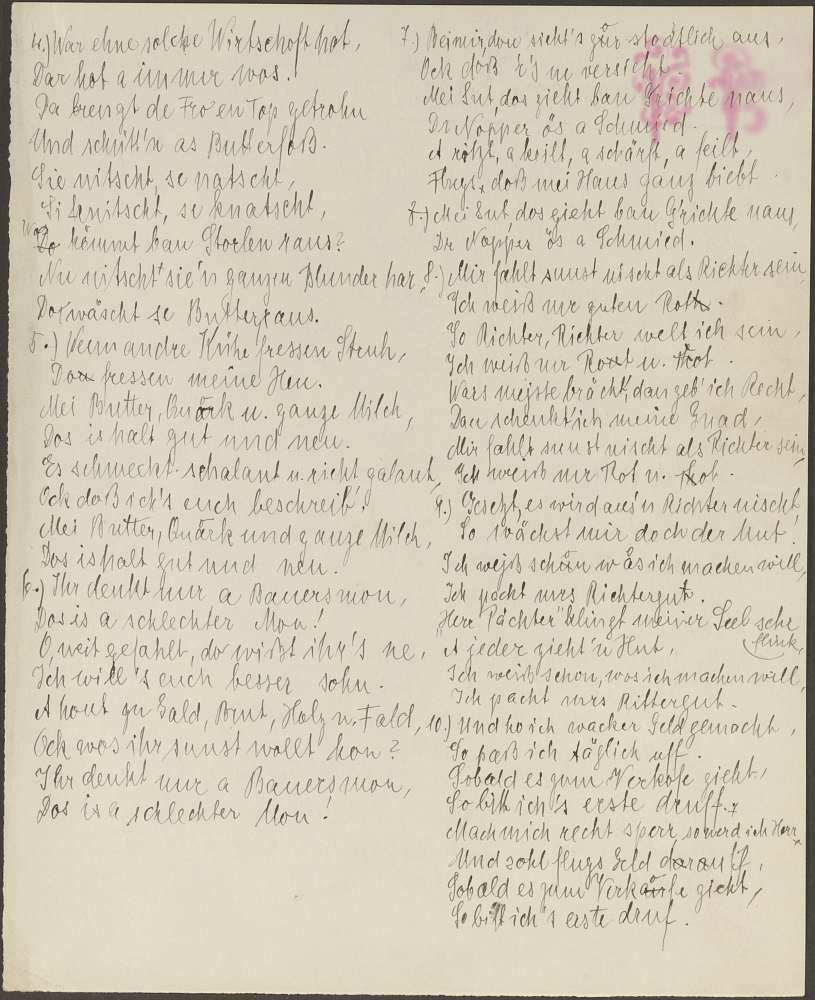 4.) War ehne solche Wirtschoft hot,
Dar hot a immer wos.
Da brengt de Fro en Top getrohn
Und schütt'n as Butterfoß.
Sie nitscht, se natscht,
Si knitscht, se knatscht,
Wos kömmt bau Storlen raus?
Nu nitscht sie'n ganzen Plunder har,
Dos wäscht se Butter aus.
5.) Wenn andre Kühe fressen Struh,
Do fressen meine Heu.
Mei Butter, Quark u. ganze Milch,
Dos is halt gut und neu.
Es schmeckt schalant u. richt galant,
Ock doß ich's euch beschreib'.
Mei Butter, Quärk und ganze Milch,
Dos is halt gut und neu.
6.) Ihr denkt nur a Bauersmon,
Dos is a schlechter Mon!
O, weit gefahlt, do wißt ihr's ne,
Ich will's euch besser sohn.
A hout zu Gald, Brut, Holz u. Fald,
Ock wos ihr sunst wollt hon?
Ihr denkt nur a Bauersmon,
Dos is a schlechter Mon!
7.) Bei mir dou sieht's gur stoatlich aus,
Ock doß 'r's ne versieht.
Mei Gut, dos zieht bau Grichte naus,
Dr Nopper ös a Schmied.
A rötzt, a keilt, a schärft, a feilt,
Flugs, doß mei Haus ganz biebt.
8.) Mei Gut, dos zieht bau G'richte naus,
Dr Nopper ös a Schmied.
8.) Mir fahlt sunst nischt als Richter sein,
Ich weiß mr guten Roth.
So Richter, Richter wellt ich sein,
Ich weiß mr Rot u. Rot.
Wars meiste bröcht, dan geb' ich Recht,
Dan schenkt ich meine Gnad,
Mir fahlt sunst nischt als Richter sein,
Ich weiß mr Rot u. Rot.
9.) Gesetzt, es wird aus'n Richter nischt,
So wächst mir doch der Mut!
Ich weiß schun wås ich machen will,
Ich pacht mrs Richtergut.
"Herr Pächter" klingt meiner Seel sehr flink,
A jeder zieht'n Hut,
Ich weiß schon, wos ich machen will,
Ich pacht mrs Rittergut.
10.) Und ho ich wacker Geld gemacht,
So paß ich täglich uff.
Sobald es zum Verkofe zieht,
So bitt ich's erste druff.
Mach mich recht sperr, so werd ich Herr
Und zohl flugs Geld darauff,
Sobald es zum Verkaufe zieht,
So bitt ich's erste druf.